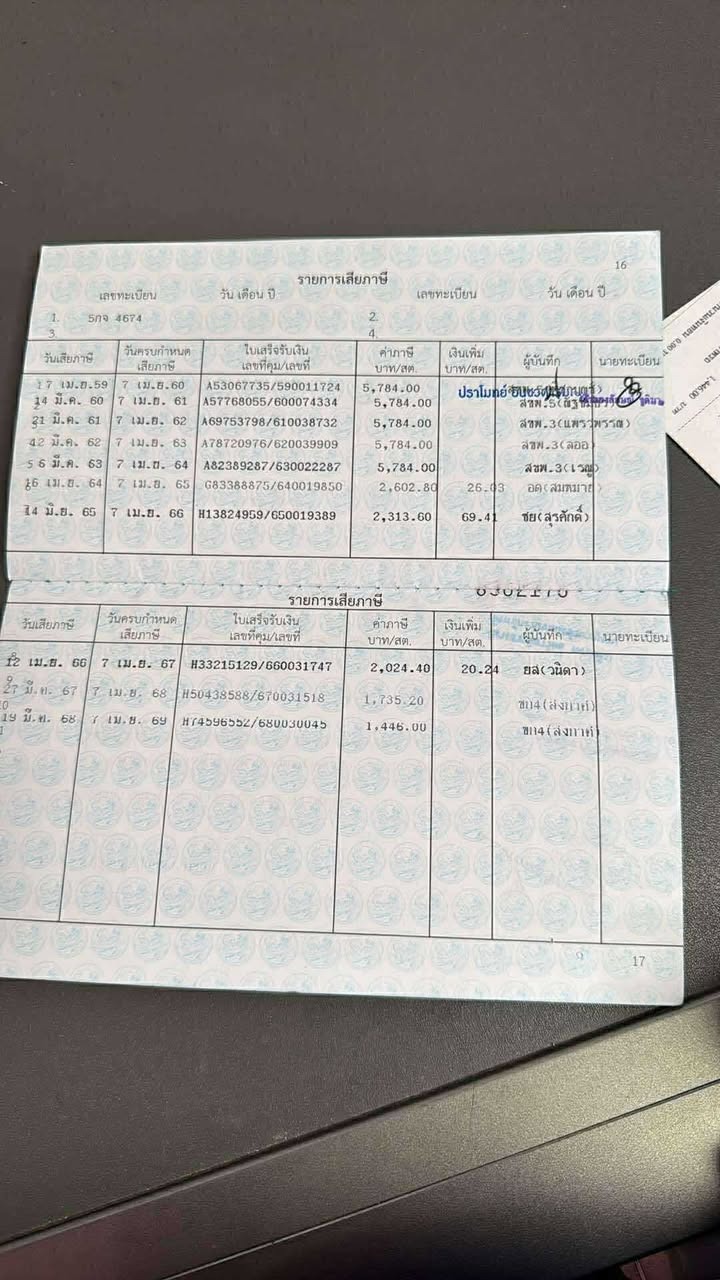 16
รายการเสียภาษี
เลขทะเบียน วัน เดือน ปี เลขทะเบียน วัน เดือน ปี
1. 5กจ 4674 2.
3. 4.
วันเสียภาษี วันครบกำหนดเสียภาษี ใบเสร็จรับเงิน เลขที่คุม/เลขที่ ค่าภาษี บาท/สต. เงินเพิ่ม บาท/สต. ผู้บันทึก นายทะเบียน
17 เม.ย.59 7 เม.ย.60 A53067735/590011724 5,784.00
ปราโมทย์
14 มี.ค. 60 7 เม.ย. 61 A57768055/600074334 5,784.00 สขพ.5
21 มี.ค. 61 7 เม.ย. 62 A69753798/610038732 5,784.00 สขพ.3(แพรวพรรณ)
12 มี.ค. 62 7 เม.ย. 63 A78720976/620039909 5,784.00 สขพ.3(ลออ)
6 มี.ค. 63 7 เม.ย. 64 A82389287/630022287 5,784.00 สขพ.3(เรณู)
16 เม.ย. 64 7 เม.ย. 65 G83388875/640019850 2,602.80 26.03 อด(สมหมาย)
14 มิ.ย. 65 7 เม.ย. 66 H13824959/650019389 2,313.60 69.41 ชย(สุรศักดิ์)
รายการเสียภาษี
วันเสียภาษี วันครบกำหนดเสียภาษี ใบเสร็จรับเงิน เลขที่คุม/เลขที่ ค่าภาษี บาท/สต. เงินเพิ่ม บาท/สต. ผู้บันทึก นายทะเบียน
12 เม.ย. 66 7 เม.ย. 67 H33215129/660031747 2,024.40 20.24 ยส(วนิดา)
27 มี.ค. 67 7 เม.ย. 68 H50438588/670031518 1,735.20 ขก4(สงกาศ)
19 มี.ค. 68 7 เม.ย. 69 H74596552/680030045 1,446.00 ขก4(สงกาศ)
17